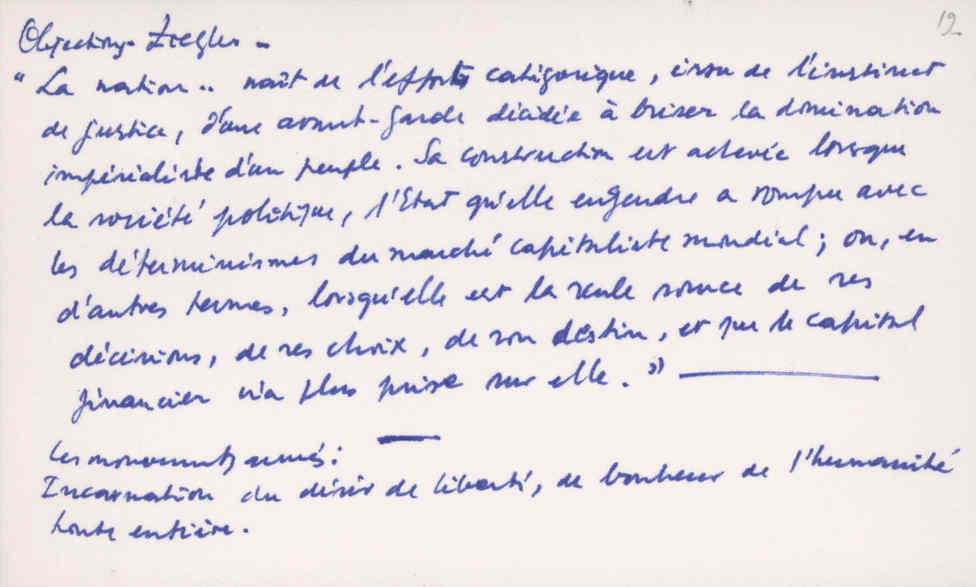 12
Objections Ziegler -
"La nation .. naît de l'effort catégorique, issu de l'instinct
de justice, d'une avant-garde décidée à briser la domination
impérialiste d'un peuple. Sa construction est achevée lorsque
la société politique, l'Etat qu'elle engendre a rompu avec
les déterminismes du marché capitaliste mondial ; ou, en
d'autres termes, lorsqu'elle est la seule source de ses
décisions, de ses choix, de son destin, et que le capital
financier n'a plus prise sur elle."
Les mouvements armés :
Incarnation du désir de liberté, de bonheur de l'humanité
toute entière.